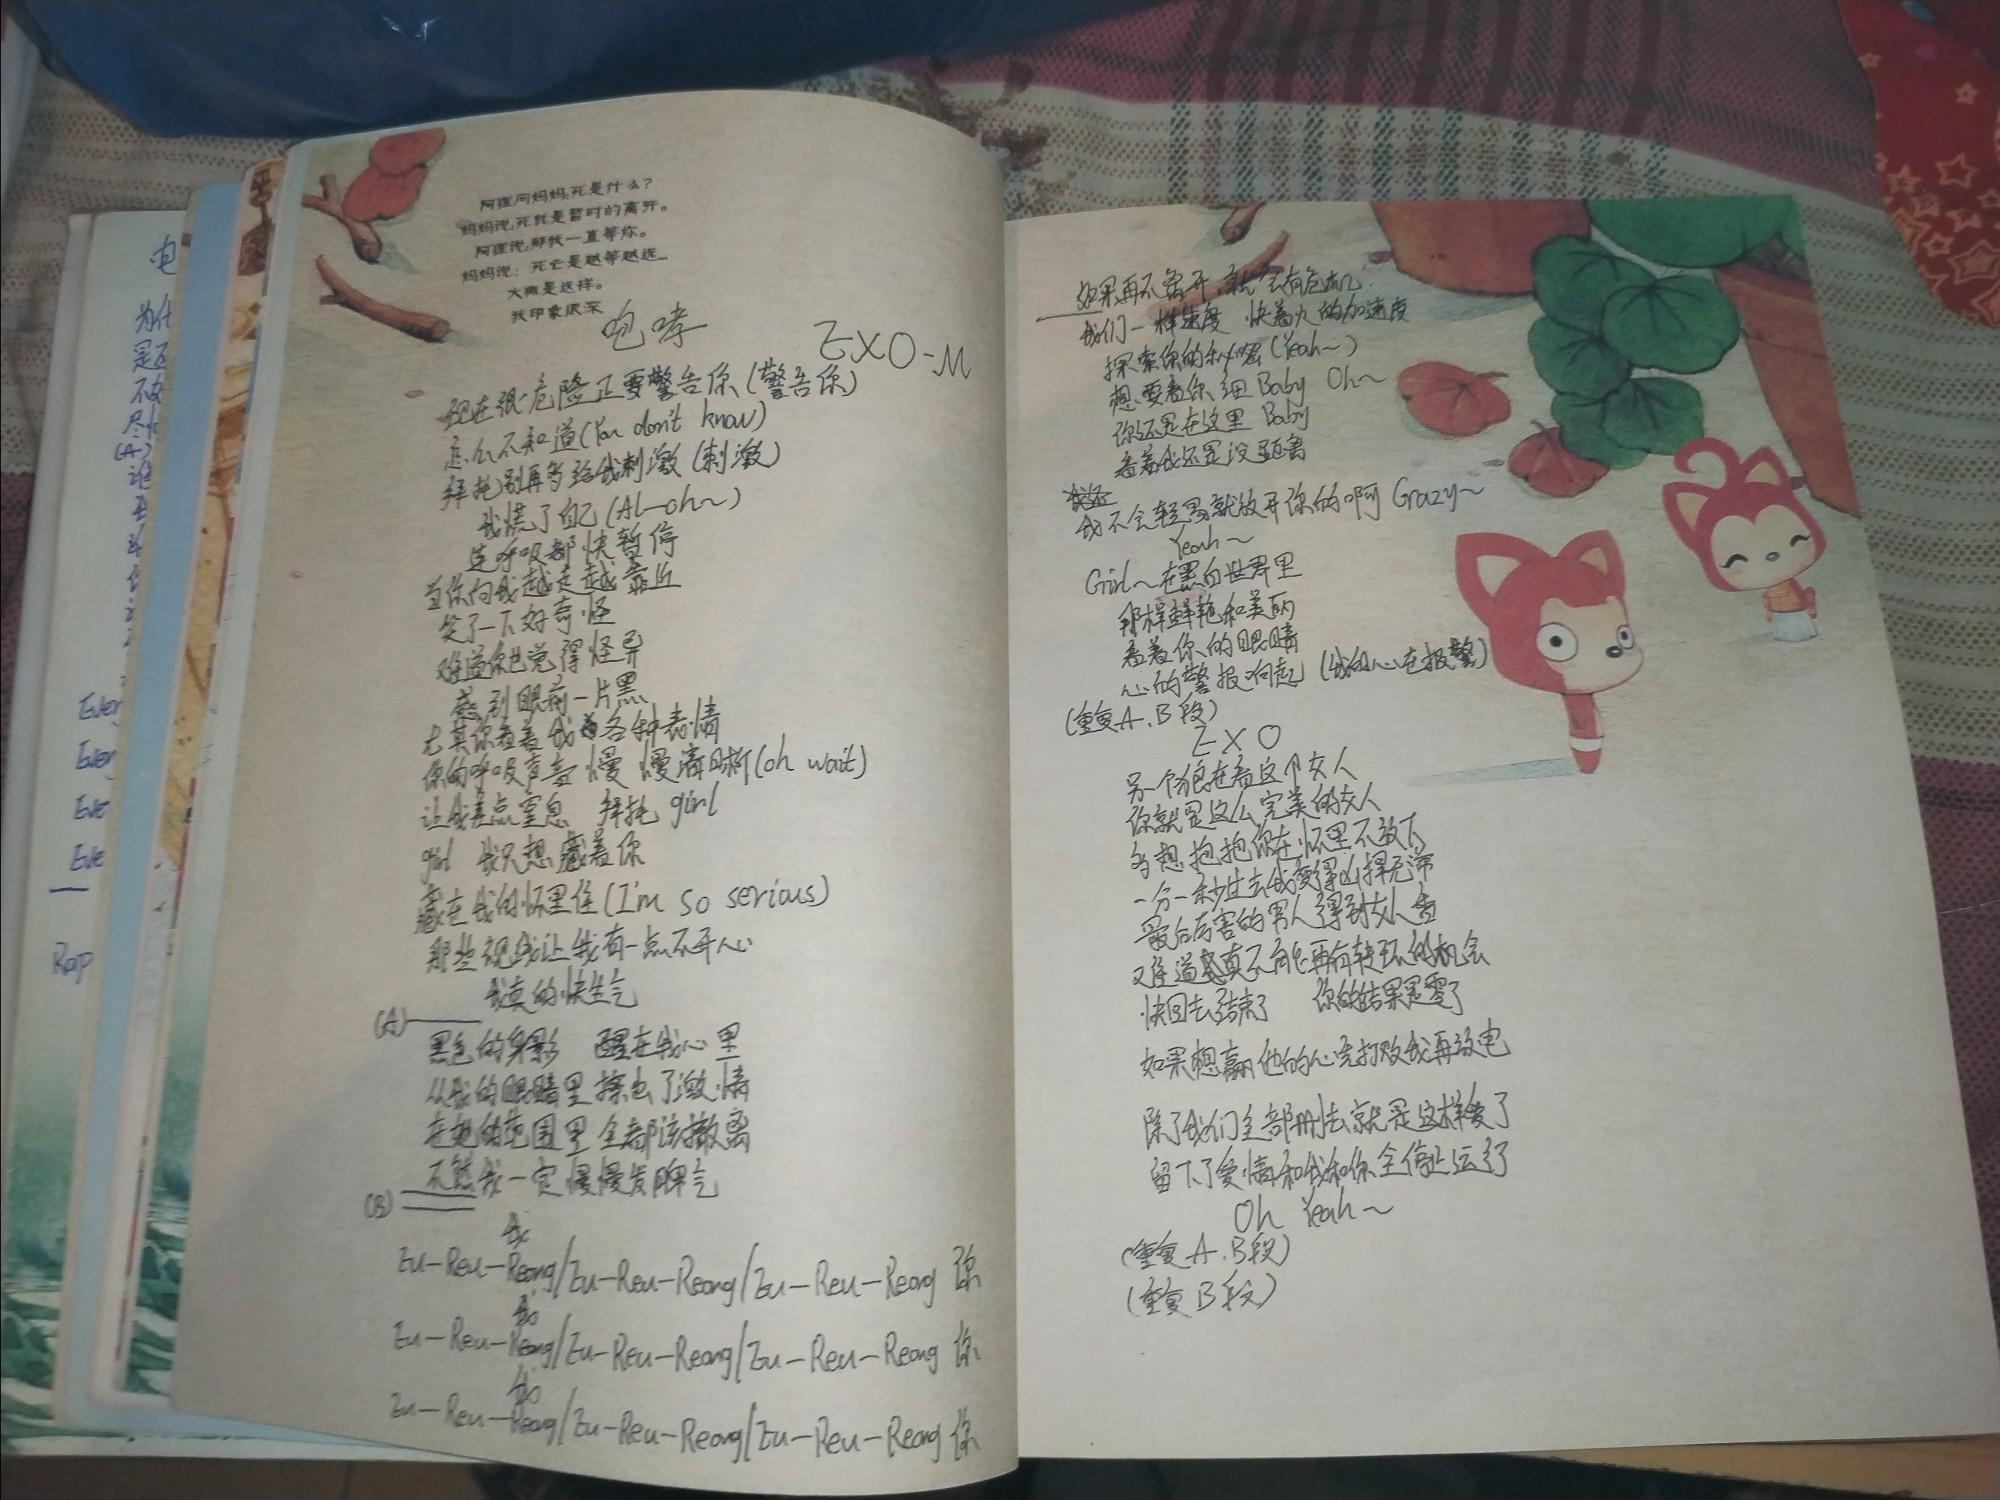 阿狸问妈妈:死是什么?
妈妈说,死就是暂时的离开。
阿狸说,那我一直等你。
妈妈说:死亡是越等越远…
大概是这样。
我印象很深
咆哮
EXO-M
现在很危险正要警告你(警告你)
怎么不知道(You don't know)
拜托别再多给我刺激(刺激)
我慌了自己(Al-oh~)
连呼吸都快暂停
当你向我越走越靠近
笑了一下好奇怪
难道你也觉得怪异
感到眼前一片黑
尤其你看着我各种表情
你的呼吸声音慢慢清晰(oh wait)
让我差点窒息 拜托 girl
girl 我只想藏着你
藏在我的怀里住(I'm so serious)
那些视线让我有一点不开心
我真的快生气
(A)
黑色的身影 醒在我心里
从我的眼睛里擦出了激情
在她的范围里全都该撤离
不然我一定慢慢发脾气
(B)
我
Eu-Reu-Reong/Eu-Reu-Reong/Eu-Reu-Reong 你
我
Eu-Reu-Reong/Eu-Reu-Reong/Eu-Reu-Reong 你
我
Eu-Reu-Reong/Eu-Reu-Reong/Eu-Reu-Reong 你
如果再不离开,就会有危机.
我们一样速度 快着火的加速度
探索你的秘密(Yeah~)
想要看你细 Baby Oh~
你还是在这里 Baby
看着我还是没距离
我不会轻易就放开你的啊 Grazy~
Yeah~
Girl~在黑白世界里
那样鲜艳和美丽
看着你的眼睛
心的警报响起 (我的心在报警)
(重复A.B段)
EXO
另一个狼在看这个女人
你就是这么完美的女人
多想抱抱你在怀里不放下
一分一秒过去我变得凶悍无常
最后厉害的男人得到女人
难道真不能再有转环的机会
快回去结束了 你的结果是零了
如果想赢他的心先打败我再放电
除了我们全部删去就是这样爱了
留下了爱情和我和你全停止运行
Oh Yeah~
(重复A.B段)
(重复B段)
电
为什
是
不
尽
(A)
谁
Every
Every
Eve
Eve
Rap